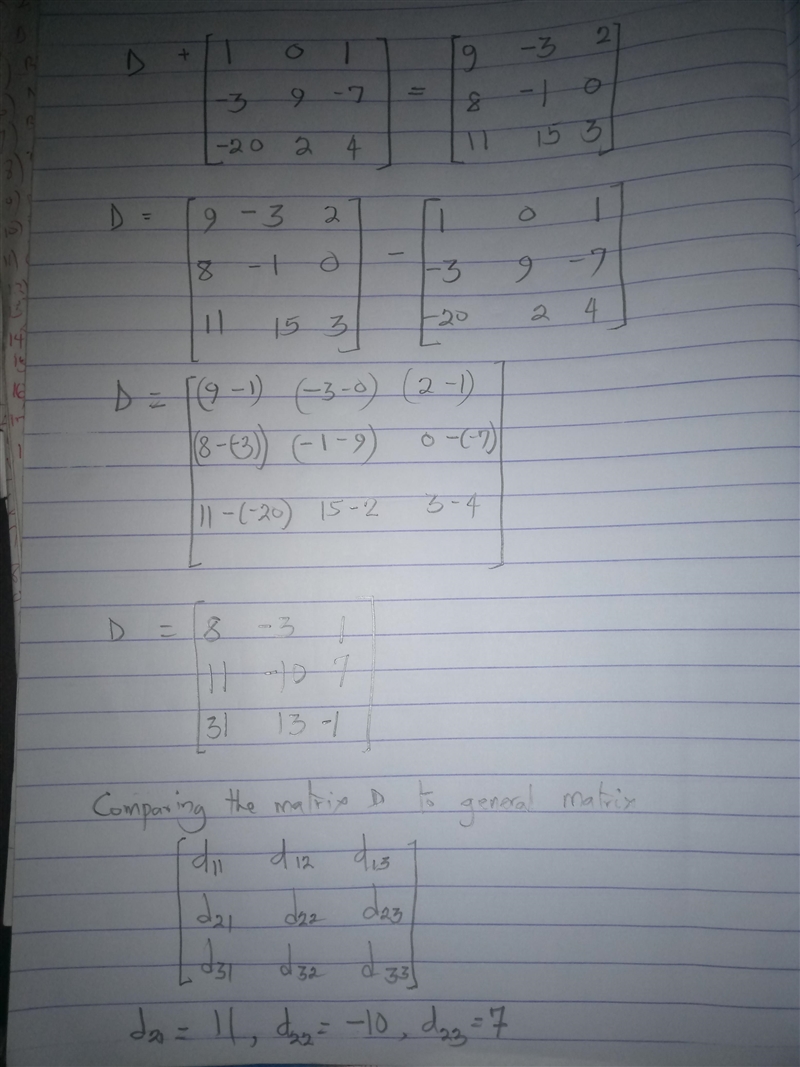 D + [1 0 1
-3 9 -7
-20 2 4] = [9 -3 2
8 -1 0
11 15 3]
D = [9 -3 2
8 -1 0
11 15 3] - [1 0 1
-3 9 -7
-20 2 4]
D = [(9-1) (-3-0) (2-1)
(8-(-3)) (-1-9) 0-(-7)
11-(-20) 15-2 3-4]
D = [8 -3 1
11 -10 7
31 13 -1]
Comparing the matrix D to general matrix
[d11 d12 d13
d21 d22 d23
d31 d32 d33]
d21 = 11, d22 = -10, d23 = 7